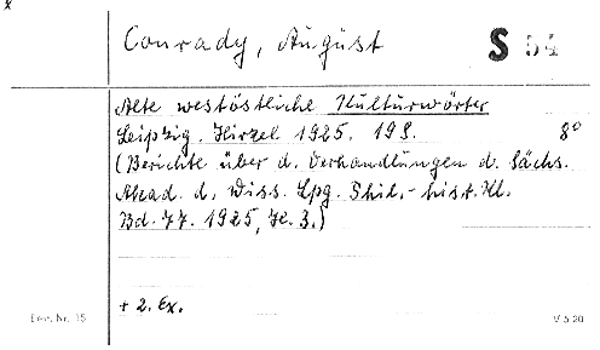 Conrady, August
S 54
Alte westöstliche Kulturwörter
Leipzig. Hirzel 1925. 19 S. 8°
(Berichte über d. Verhandlungen d. Sächs.
Akad. d. Wiss. Lpg. Phil.-hist. Kl.
Bd. 77. 1925, H. 3.)
+ 2. Ex.
Einr. Nr. 15
V 5 20